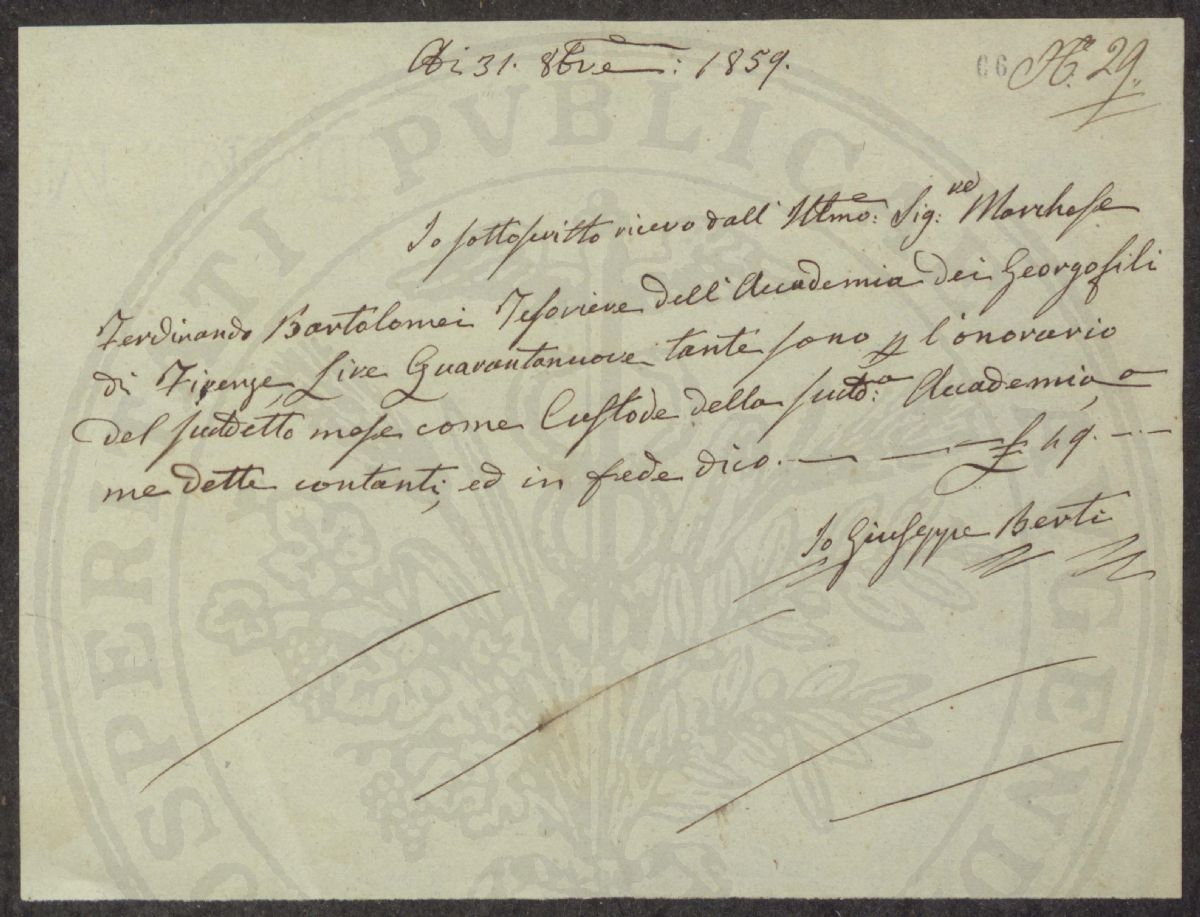 Adi 31. 8bre: 1859.
66 N.° 29.
Io sottoscritto ricevo dall' Illmo: Sig:re Marchese
Ferdinando Bartolomei Tesoriere dell' Accademia dei Georgofili
di Firenze, Lire Quarantanuove tante sono p l'onorario
del suddetto mese come Custode della sudd:a Accademia, a
me dette contanti, ed in fede dico. — — £ 49. — —
Io Giuseppe Berti
PROSPERITATI PUBLICAE AUGENDAE